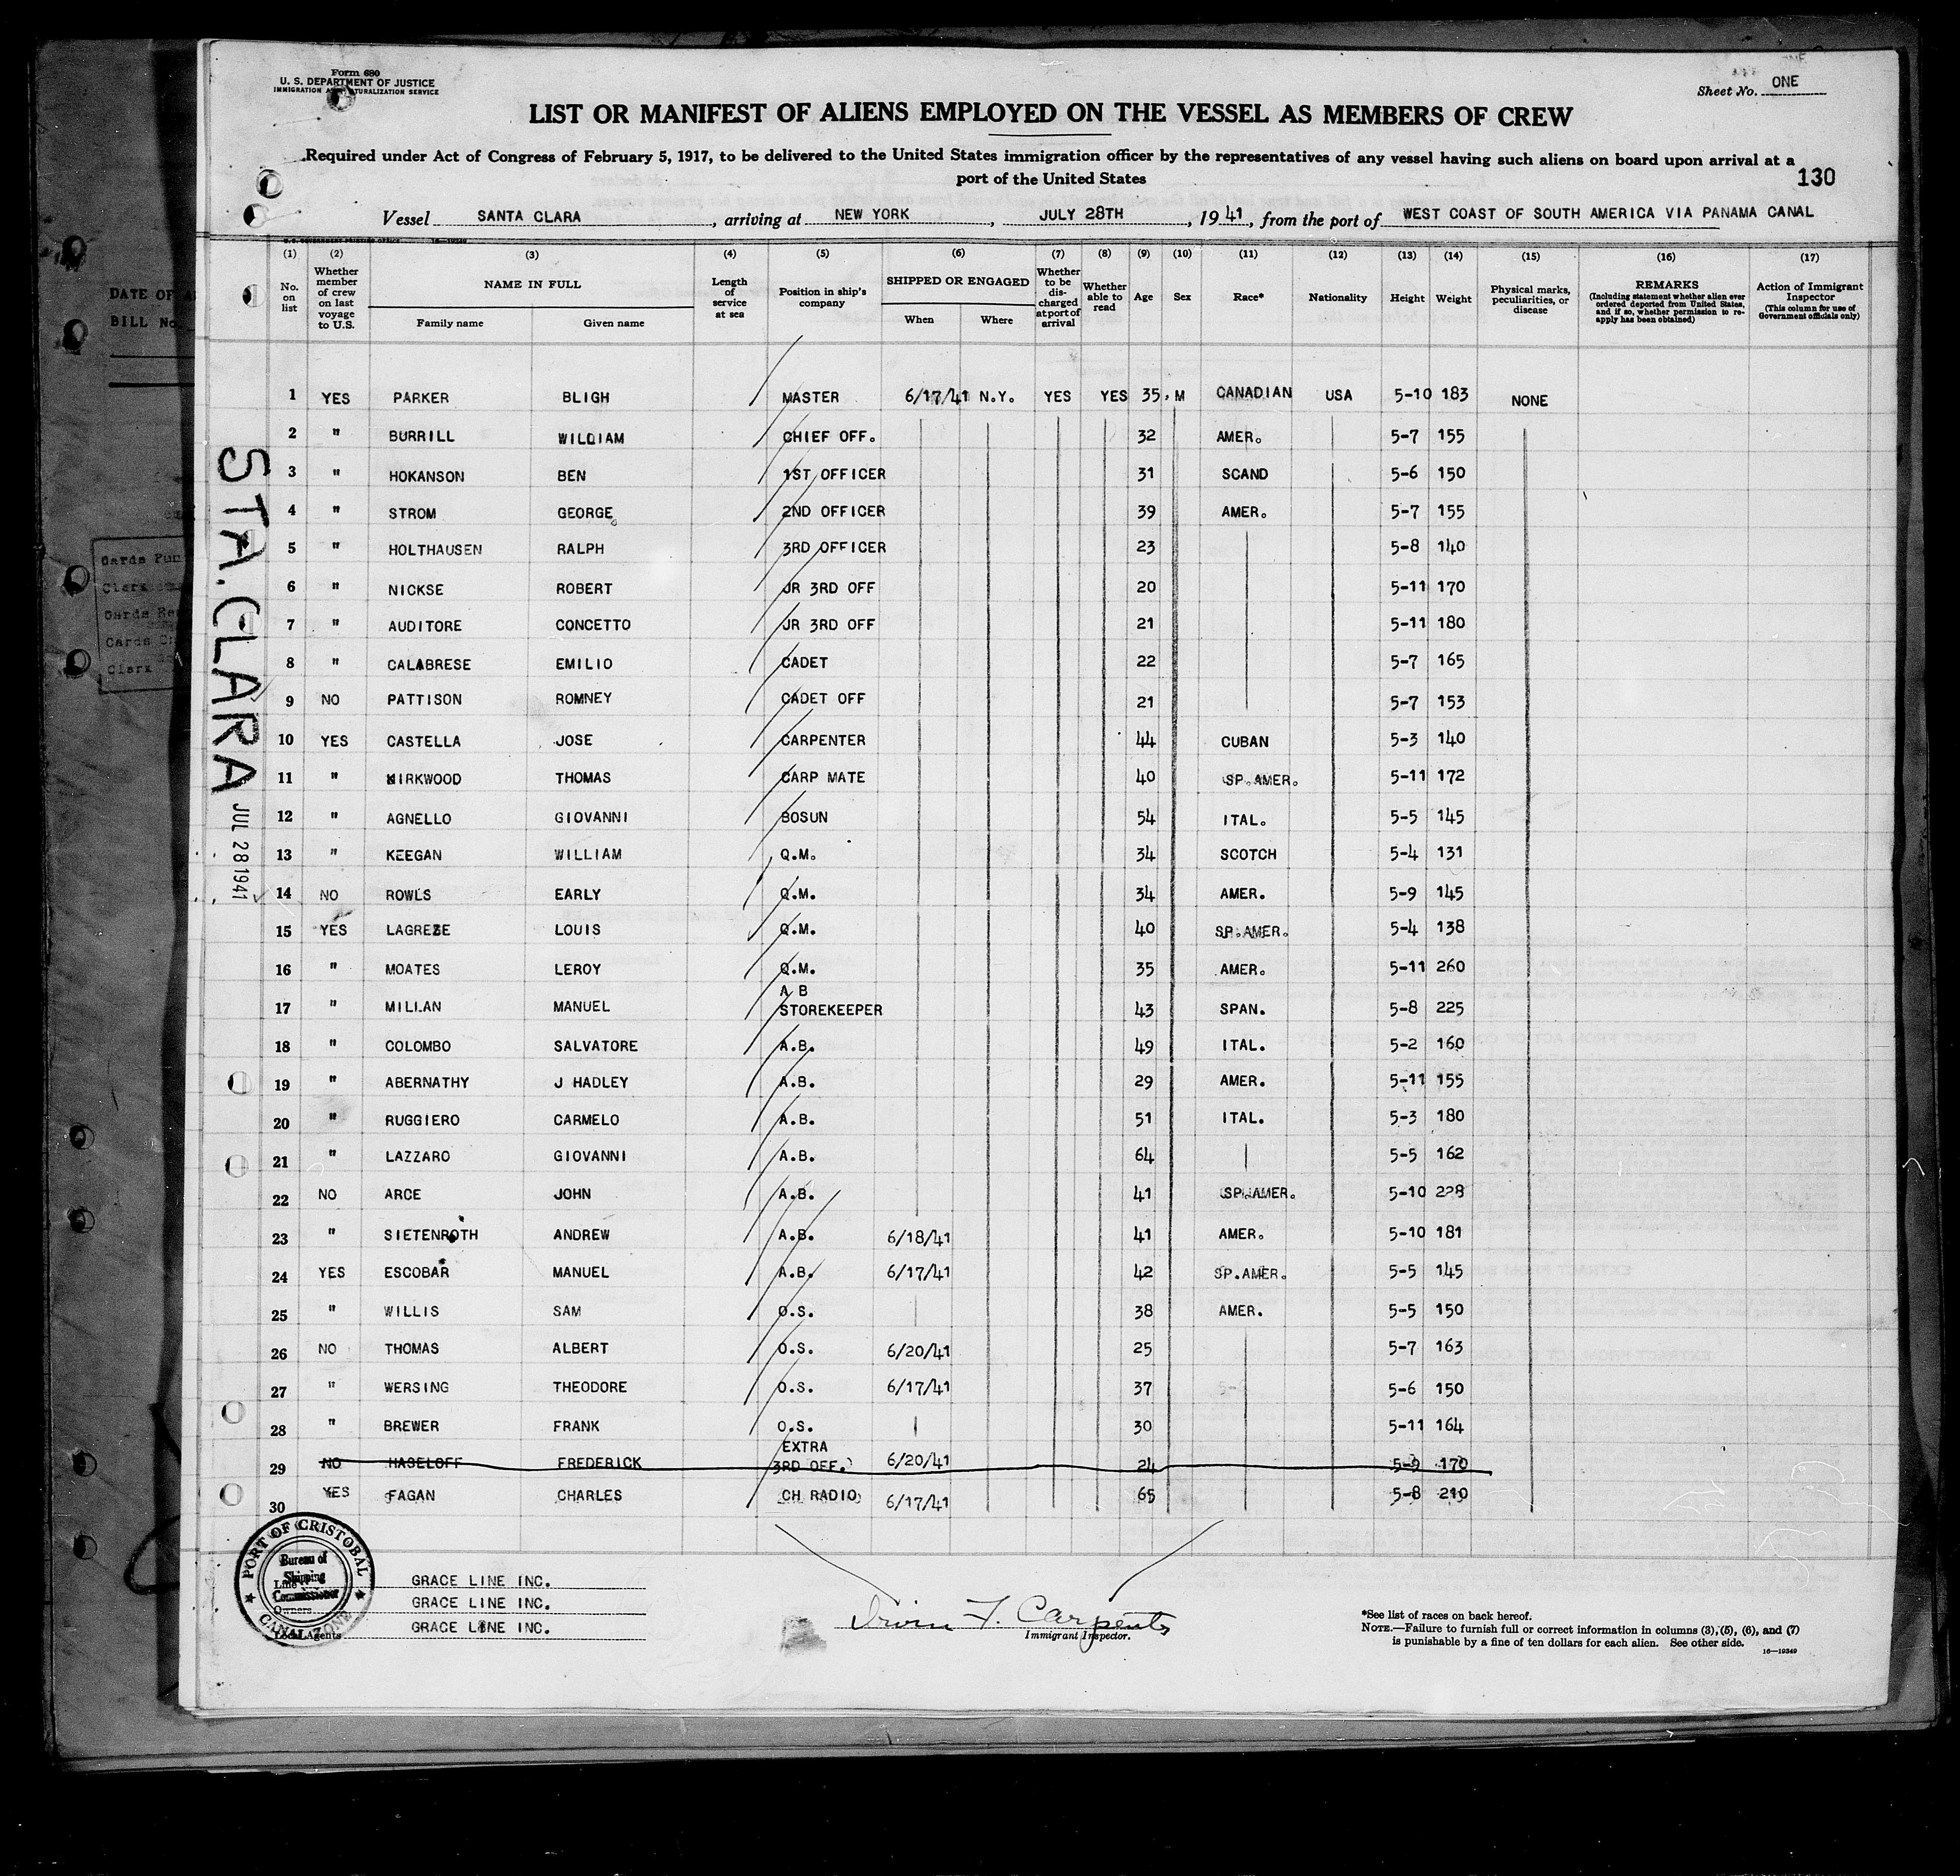 Form 680
U. S. DEPARTMENT OF JUSTICE
IMMIGRATION NATURALIZATION SERVICE
Sheet No. ONE
LIST OR MANIFEST OF ALIENS EMPLOYED ON THE VESSEL AS MEMBERS OF CREW
Required under Act of Congress of February 5, 1917, to be delivered to the United States immigration officer by the representatives of any vessel having such aliens on board upon arrival at a
port of the United States
130
Vessel SANTA CLARA, arriving at NEW YORK, JULY 28TH, 1941, from the port of WEST COAST OF SOUTH AMERICA VIA PANAMA CANAL
U. S. GOVERNMENT PRINTING OFFICE 16—19349
(1) (2) (3) (4) (5) (6) (7) (8) (9) (10) (11) (12) (13) (14) (15) (16) (17)
No. on list
Whether member of crew on last voyage to U.S.
NAME IN FULL
Family name
Given name
Length of service at sea
Position in ship's company
SHIPPED OR ENGAGED
When
Where
Whether to be discharged at port of arrival
Whether able to read
Age
Sex
Race*
Nationality
Height
Weight
Physical marks, peculiarities, or disease
REMARKS
(Including statement whether alien ever ordered deported from United States, and if so, whether permission to reapply has been obtained)
Action of Immigrant Inspector
(This column for use of Government officials only)
1 YES PARKER BLIGH MASTER 6/17/41 N.Y. YES YES 35 M CANADIAN USA 5-10 183 NONE
2 " BURRILL WILLIAM CHIEF OFF. 32 AMER. 5-7 155
3 " HOKANSON BEN 1ST OFFICER 31 SCAND 5-6 150
4 " STROM GEORGE 2ND OFFICER 39 AMER. 5-7 155
5 " HOLTHAUSEN RALPH 3RD OFFICER 23 5-8 140
6 " NICKSE ROBERT JR 3RD OFF 20 5-11 170
7 " AUDITORE CONCETTO JR 3RD OFF 21 5-11 180
8 " CALABRESE EMILIO CADET 22 5-7 165
9 NO PATTISON ROMNEY CADET OFF 21 5-7 153
10 YES CASTELLA JOSE CARPENTER 44 CUBAN 5-3 140
11 " KIRKWOOD THOMAS CARP MATE 40 SP.AMER. 5-11 172
12 " AGNELLO GIOVANNI BOSUN 54 ITAL. 5-5 145
13 " KEEGAN WILLIAM Q.M. 34 SCOTCH 5-4 131
14 NO ROWLS EARLY Q.M. 34 AMER. 5-9 145
15 YES LAGREZE LOUIS Q.M. 40 SP.AMER. 5-4 138
16 " MOATES LEROY Q.M. 35 AMER. 5-11 260
17 " MILLAN MANUEL A B STOREKEEPER 43 SPAN. 5-8 225
18 " COLOMBO SALVATORE A.B. 49 ITAL. 5-2 160
19 " ABERNATHY J HADLEY A.B. 29 AMER. 5-11 155
20 " RUGGIERO CARMELO A.B. 51 ITAL. 5-3 180
21 " LAZZARO GIOVANNI A.B. 64 5-5 162
22 NO ARCE JOHN A.B. 41 SP.AMER. 5-10 228
23 " SIETENROTH ANDREW A.B. 6/18/41 41 AMER. 5-10 181
24 YES ESCOBAR MANUEL A.B. 6/17/41 42 SP.AMER. 5-5 145
25 " WILLIS SAM O.S. 38 AMER. 5-5 150
26 NO THOMAS ALBERT O.S. 6/20/41 25 5-7 163
27 " WERSING THEODORE O.S. 6/17/41 37 5-6 150
28 " BREWER FRANK O.S. 30 5-11 164
29 NO HASELOFF FREDERICK EXTRA 3RD OFF. 6/20/41 24 5-9 170
30 YES FAGAN CHARLES CH RADIO 6/17/41 65 5-8 210
STA. CLARA
JUL 28 1941
PORT OF CRISTOBAL
Bureau of
Shipping
Commissioner
CANAL ZONE
Line GRACE LINE INC.
Owners GRACE LINE INC.
Local Agents GRACE LINE INC.
Irvin F. Carpenter
Immigrant Inspector.
*See list of races on back hereof.
NOTE.—Failure to furnish full or correct information in columns (3), (5), (6), and (7)
is punishable by a fine of ten dollars for each alien. See other side.
16—19349
DATE OF
BILL No.
Cards Pun
Clerk
Cards
Cards
Clerk